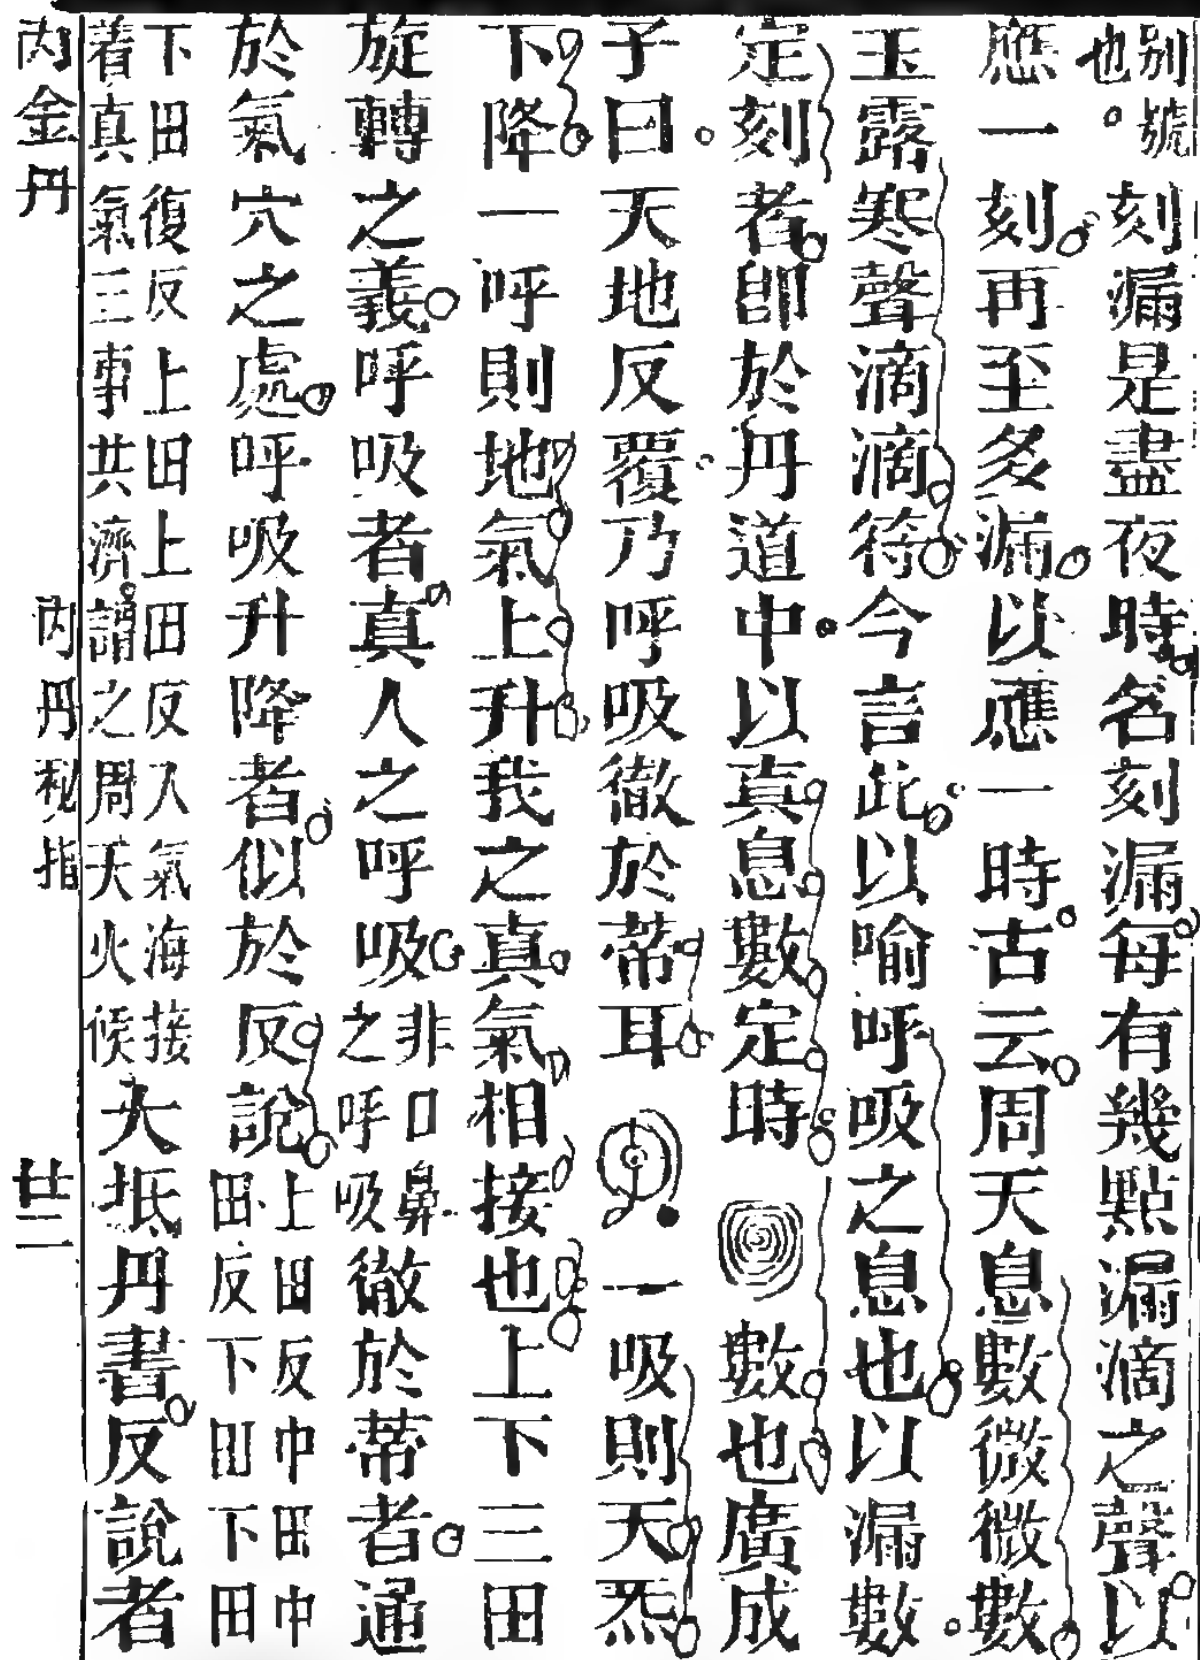 别號也。刻漏是盡夜時名刻漏每有幾點漏滴之聲以
應一刻再至多漏以應一時古云周天息數微微數
玉露寒聲滴滴符今言此以喻呼吸之息也以漏數
定刻者卽於丹道中以真息數定時數也廣成
子曰天地反覆乃呼吸徹於蒂耳一吸則天炁
下降一呼則地氣上升我之真氣相接也上下三田
旋轉之義呼吸者真人之呼吸非口鼻之呼吸徹於蒂者通
於氣穴之處呼吸升降者似於反說上田反中田中田反下田下田
下田復反上田上田反入氣海接着真氣三事共濟謂之周天火候大抵丹書反說者
内金丹
内丹秘指
廿二